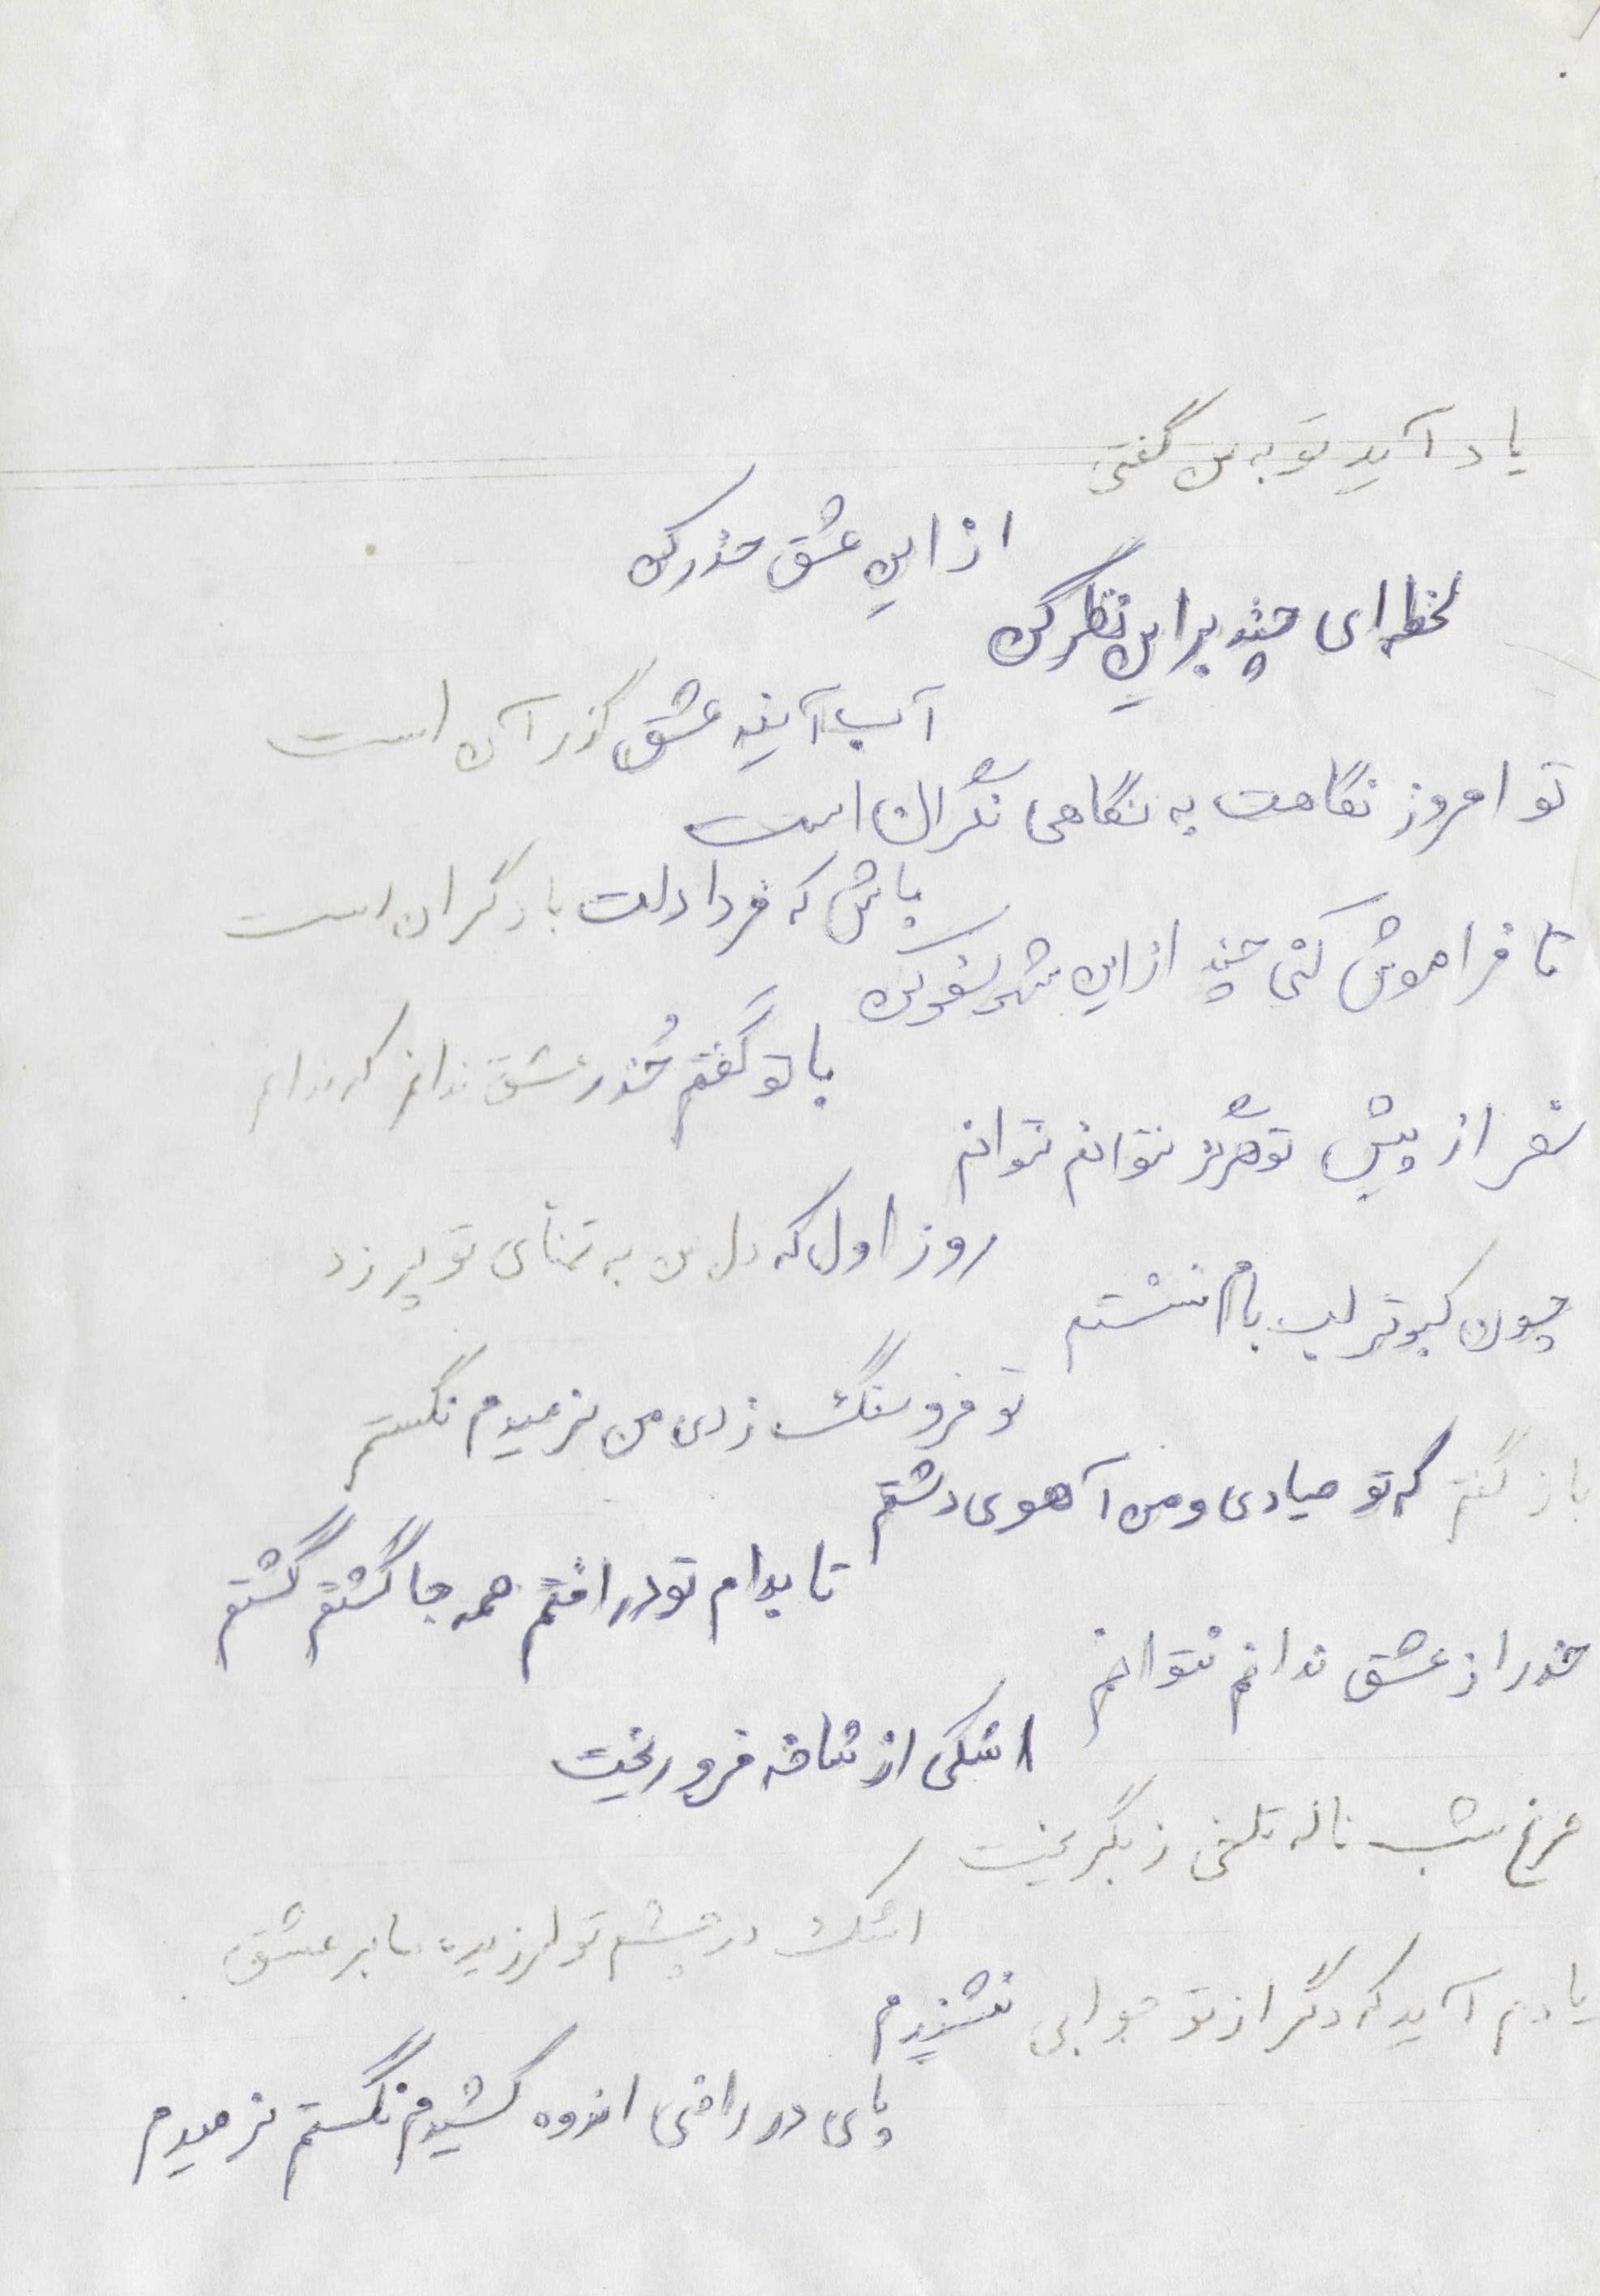 یاد آید تو به من گفتی
از این عشق حذر کن
لحظه ای چند بر این نظر کن
آب آینه عشق گذر آن است
تو امروز نگاهت به نگاهی نگران است
باش که فردا دلت با دگران است
تا فراموش کنی چند از این شهر سفر کن
با تو گفتم حُذر عشق ندانم که ندانم
سفر از پیش تو هرگز نتوانم نتوانم
روز اول که دل من به تمنای تو پر زد
چون کبوتر لب بام نشستم
تو فرو سنگ زدی من نرمیدم نگستم
باز گفتم که تو صیادی و من آهوی دشتم
تا بدام تو در افتم همه جا گشتم گشتم
حذر از عشق ندانم نتوانم
اشکی از شاخه فرو ریخت
مرغ شب ناله تلخی زد بگریخت
اشک در چشم تو لرزید عشق
یادم آید که دگر از تو جوابی نشنیدم
پای در اندوه کشیدم نگستم نرمیدم